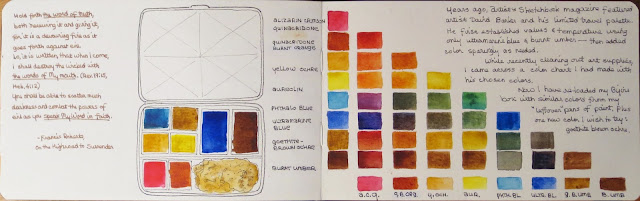 Move forth the word of truth,
both honoring it and giving it,
for it is a devouring fire as it
goes forth against evil.
So, is is written, that when I come,
I shall destroy the wicked with
the words of My mouth. (Rev. 19:15,
Heb. 4:12)
You shall be able to scatter much
darkness and contest the powers of
evil as you speak My Word in faith.
- Frances Roberts
On the Highroad to Surrender
ALIZARIN CRIMSON
QUINACRIDONE
QUINACRIDONE
BURNT ORANGE
YELLOW OCHRE
AUREOLIN
PHTHALO BLUE
ULTRAMARINE
BLUE
GOETHITE -
BROWN OCHRE
BURNT UMBER
Years ago, Artists Sketchbook magazine featured
artist David and his limited travel palette.
He first established values & temperature using
only ultramarine blue & burnt umber — then added
color sparingly as needed.
While recently cleaning out art supplies,
I came across a color chart I had made with
his chosen colors.
Now I have re-loaded my Bijou
box with similar colors from my
"leftover" pans of paint. Plus
one new color I wish to try!
goethite brown ochre.
A.C.Q.
Q.B.ORG
Y. OCH.
AUR.
PHTH. BL
ULTR. BL
G. B. UMB
B. UMB